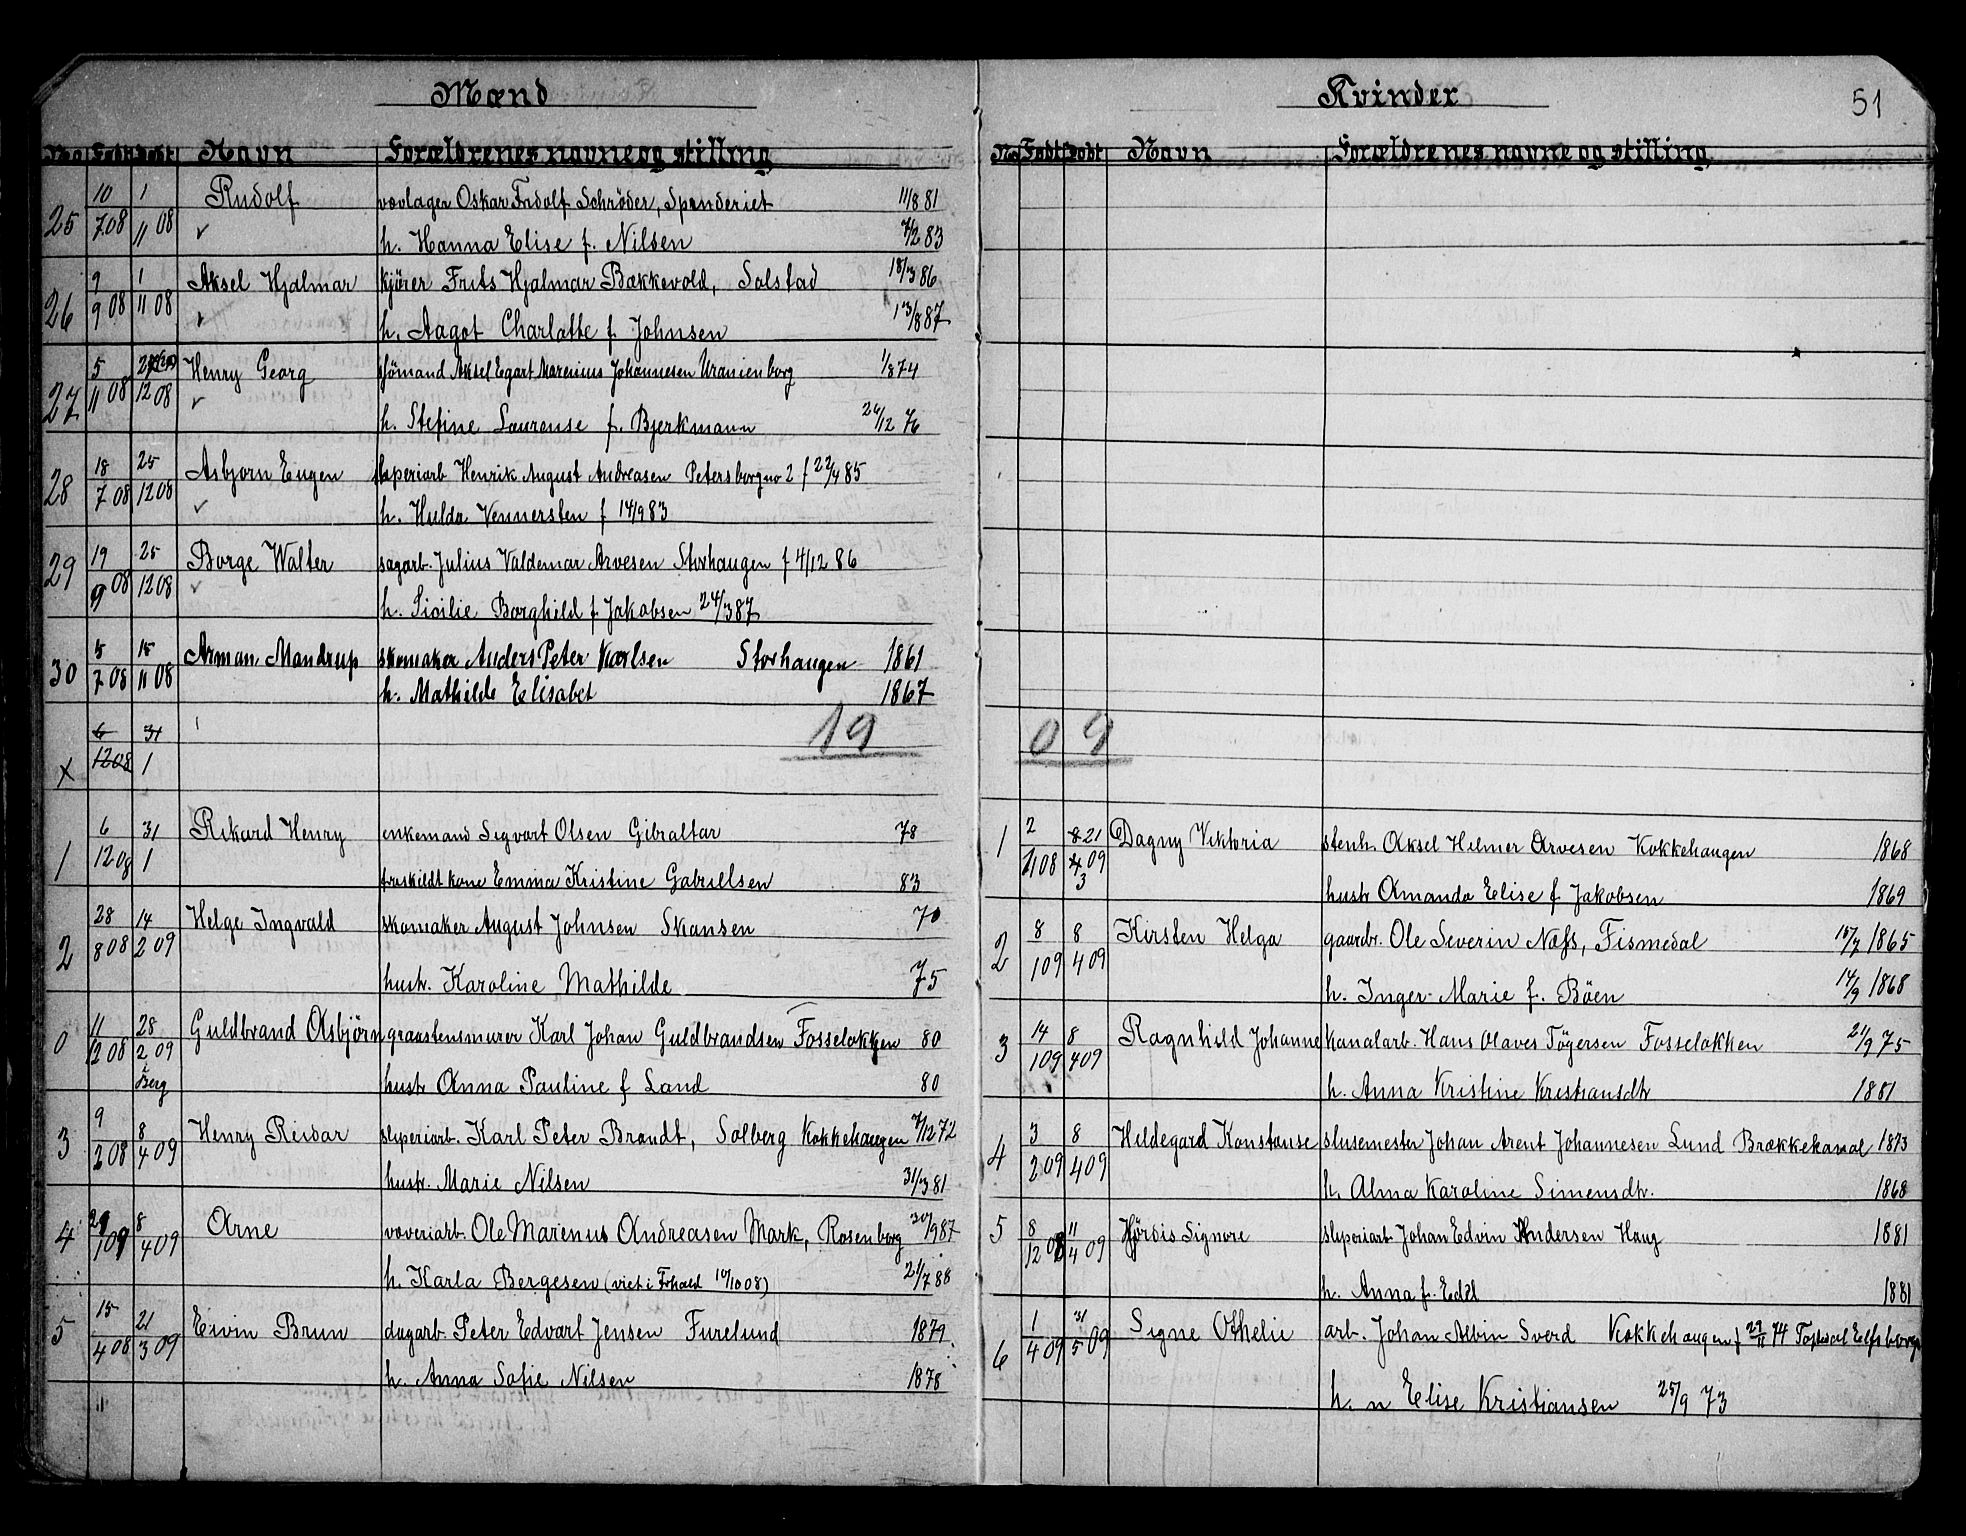 Mænd
No Født Døbt Navn Forældrenes navne og stilling
25 10/7 08 1/11 08 Rudolf vævlager Oskar Fridolf Schröder, Spinderiet 11/8 81
h. Hanna Elise f. Nilsen 7/2 83
26 9/9 08 1/11 08 Aksel Hjalmar kjører Frits Hjalmar Bækkevold, Solstad 18/3 86
h. Aagot Charlotte f Johnsen 13/8 87
27 5/11 08 12 08 Henry Georg sjömand Aksel Egart Marenius Johannesen Uranienborg 1/8 74
h. Stefine Laurense f. Bjerkmann 26/12 76
28 18/7 08 25/12 08 Asbjørn Eugen sliperiarb Henrik August Andreasen Petersborg no 2 f 22/4 85
h. Hulda Vennersten f 14/9 83
29 19/9 08 25/12 08 Borge Walter sagarb. Julius Valdemar Arvesen Storhaugen f 4/12 86
h. Sicilie Borghild f. Jakobsen 24/3 87
30 5/7 08 15/11 08 Arman Mandrup skomaker Anders Peter Karlsen Storhaugen 1861
h. Mathilde Elisabet 1867
x 6/12 08 31/1
19
1 6/12 08 31/1 Rikard Henry enkemand Sigvart Olsen Gibraltar 78
fraskildt kone Emma Kristine Gabrillsen 83
2 28/8 08 14/2 09 Helge Ingvald skomaker August Johnsen Skansen 70
hustr. Karoline Mathilde 75
0 11/12 08 28/2 09 i Berg Guldbrand Asbjörn graastensmurer Karl Johan Guldbrandsen Fosseløkken 80
hustr Anna Pauline f Land 80
3 9/2 08 8/4 09 Henry Reidar sliperiarb. Karl Peter Brandt, Solberg Kokkehaugen 7/12 72
hustr. Marie Nilsen 31/3 81
4 29/1 09 8/4 09 Arne væveriarb. Ole Marenus Andreasen Mark, Rosenborg 30/9 87
h. Karla Bergesen (viet i Frhald 10/10 08) 21/7 88
5 15/4 08 21/3 09 Eivin Brun dagarb. Peter Edvart Jensen Furelund 1879
h. Anna Sofie Nilsen 1878
Kvinder 51
No Født Døbt Navn Forældrenes navne og stilling
09
1 2/11 08 8 21/3 09 Dagny Viktoria stenh. Aksel Hilmer Arvesen Kokkehaugen 1868
hustr Amanda Elise f Jakobsen 1869
2 8/1 09 8/4 09 Kirsten Helga gaardbr. Ole Severin Næss, Fismedal 15/7 1865
h. Inger Marie f. Böen 14/9 1868
3 14/1 09 8/4 09 Ragnhild Johanne kanalarb. Hans Olaves Töyersen Fosseløkken 21/9 75
h. Anna Kristine Kristiansdtr 1881
4 3/2 09 8/4 09 Hildegard Konstanse slusemester Johan Arent Johannesen Lund Brækkekanal 1873
h. Alma Karoline Simensdtr. 1868
5 8/12 08 11/4 09 Hjördis Signore sliperiarb Johan Edvin Andersen Haug 1881
h. Anna f. Edel 1881
6 1/4 09 31/5 09 Signe Othelie arb. Johan Albin Sverd Kokkehaugen f 29/11 74 Elfsborgs
h. n Elise Kristiansen 25/9 73